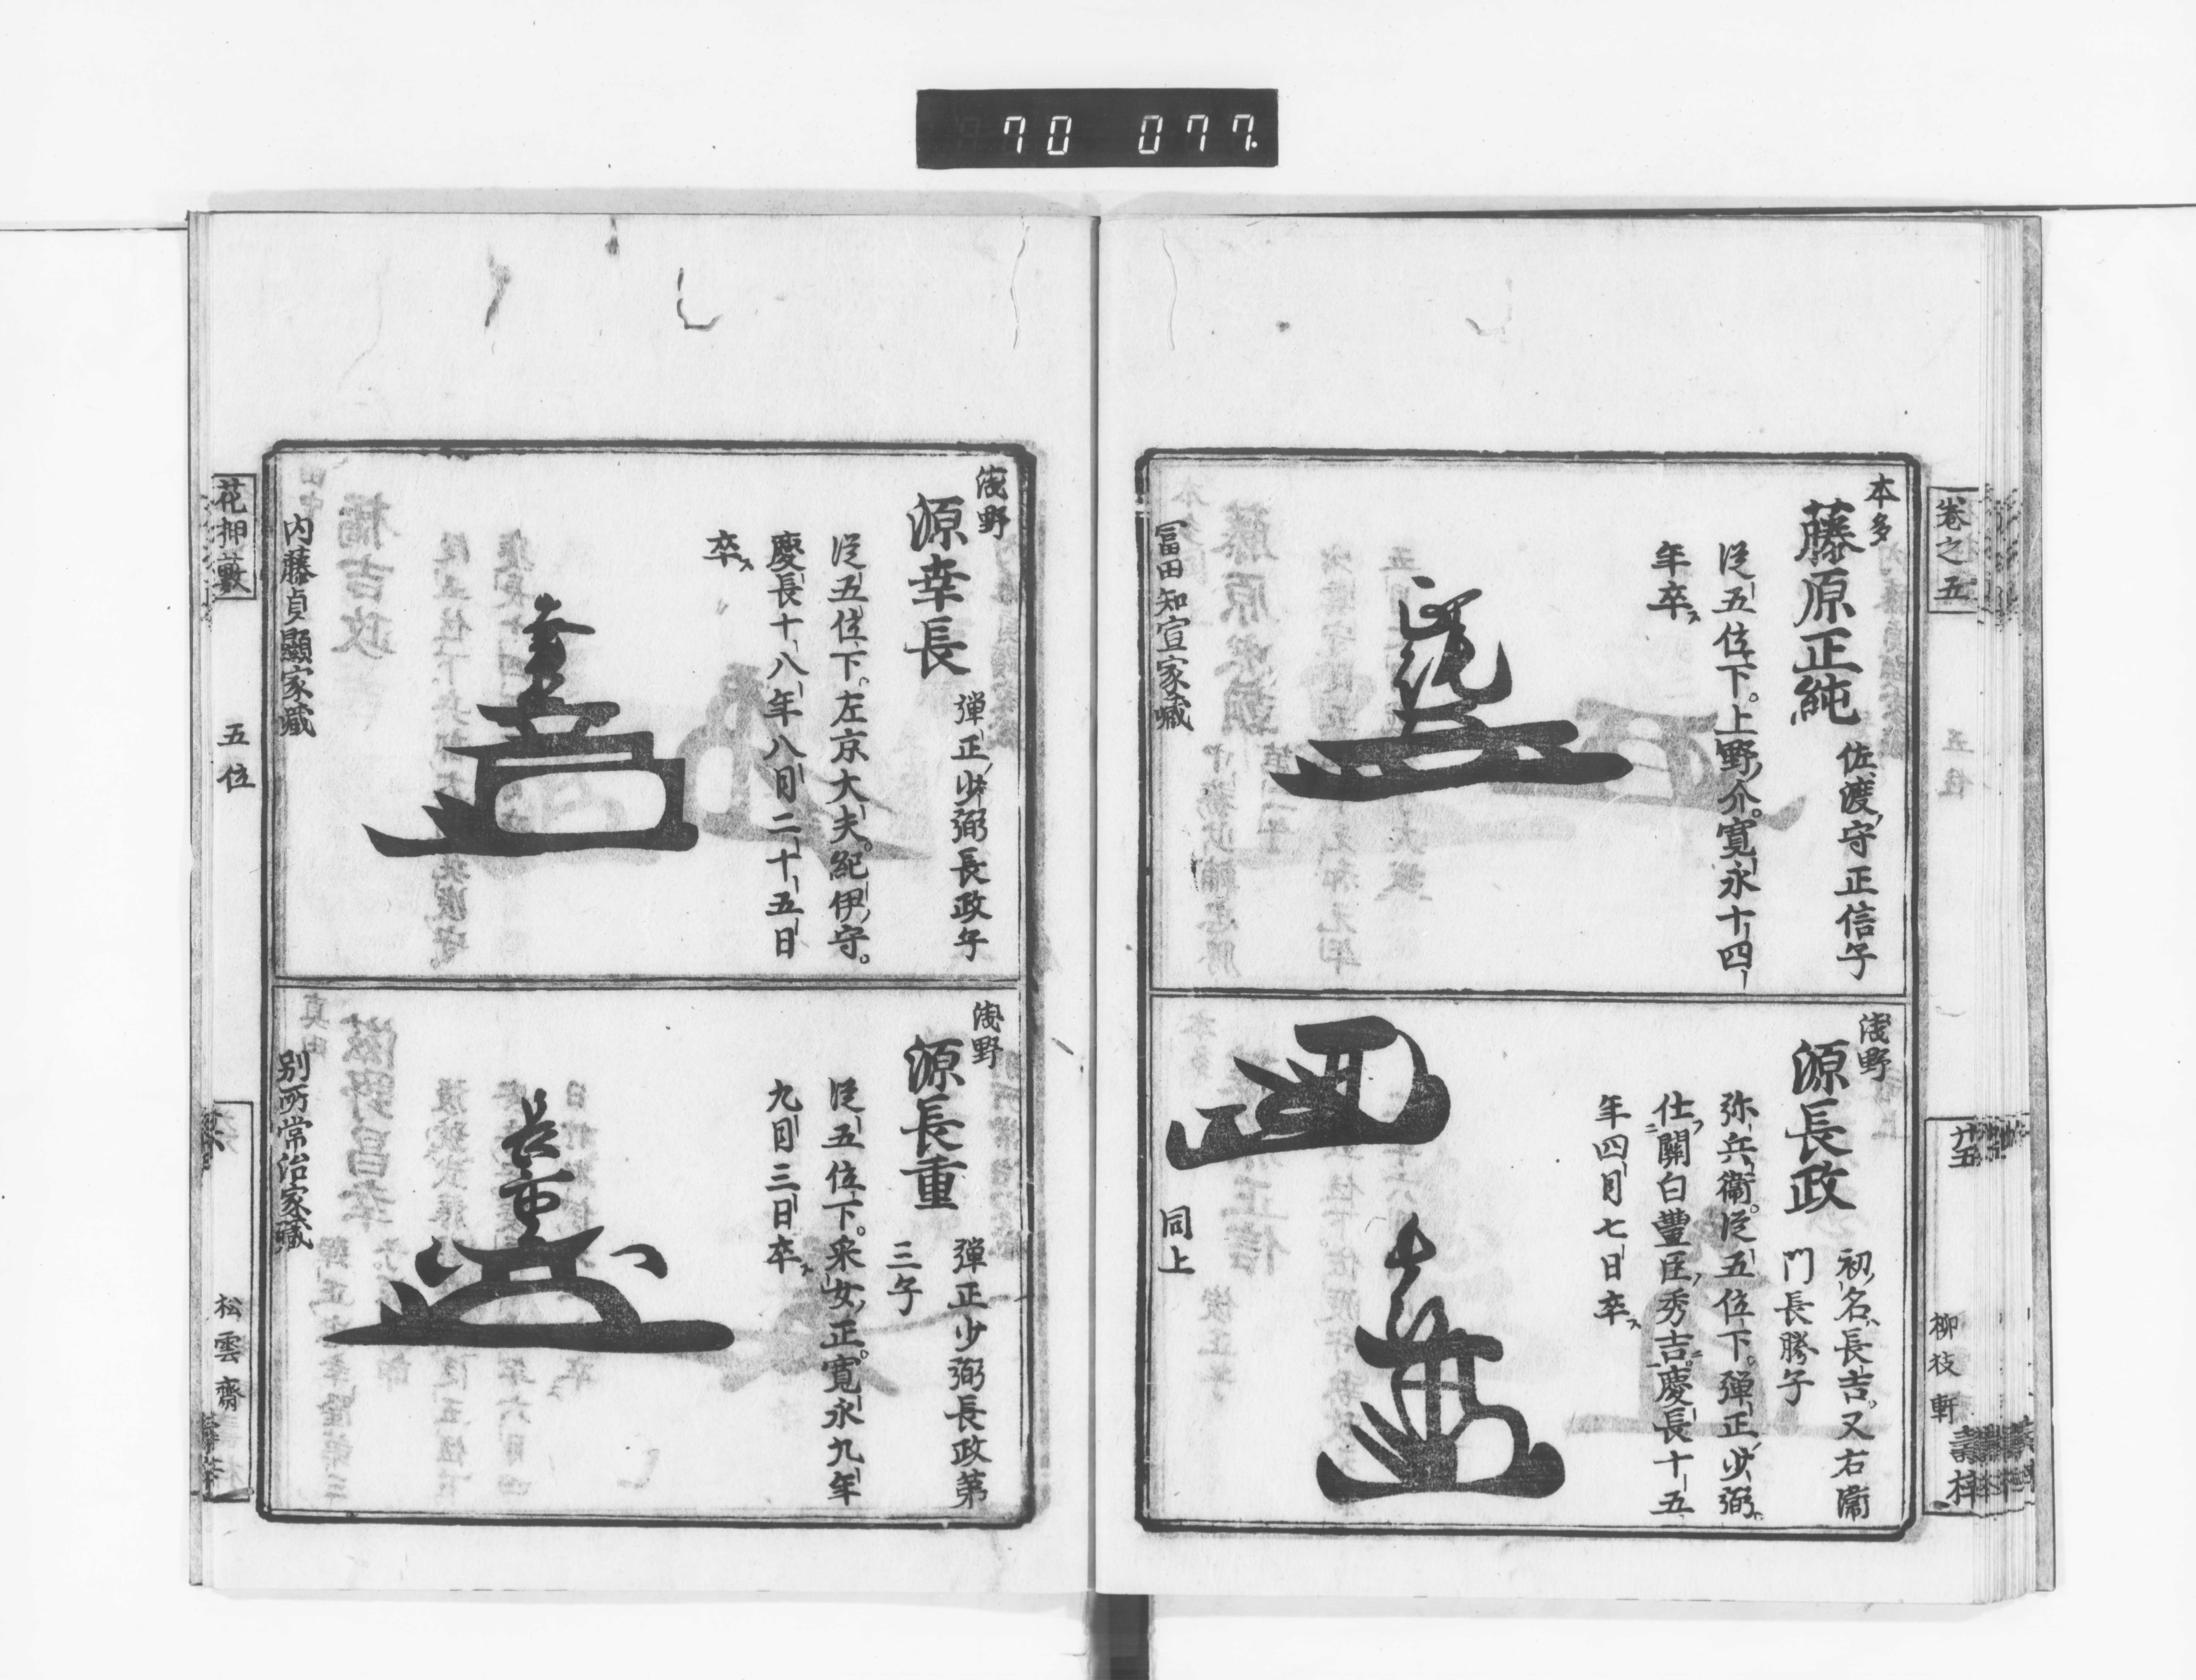 70 077
卷之五
廿五
柳枝軒
本多
藤原正純
佐渡守正信子
從五位下。上野介。寛永十四
年卒ス
冨田知宣家藏
淺野
源長政
初名長吉。又右衞
門長勝子
弥兵衞。從五位下。彈正少弼。
仕關白豐臣秀吉。慶長十五
年四月七日卒ス
同上
淺野
源幸長
彈正少弼長政子
從五位下。左京大夫。紀伊守。
慶長十八年八月二十五日
卒ス
内藤貞顯家藏
淺野
源長重
彈正少弼長政第
三子
從五位下。采女正。寛永九年
九月三日卒ス
別所常治家藏
花押藪
五位
松雲齋